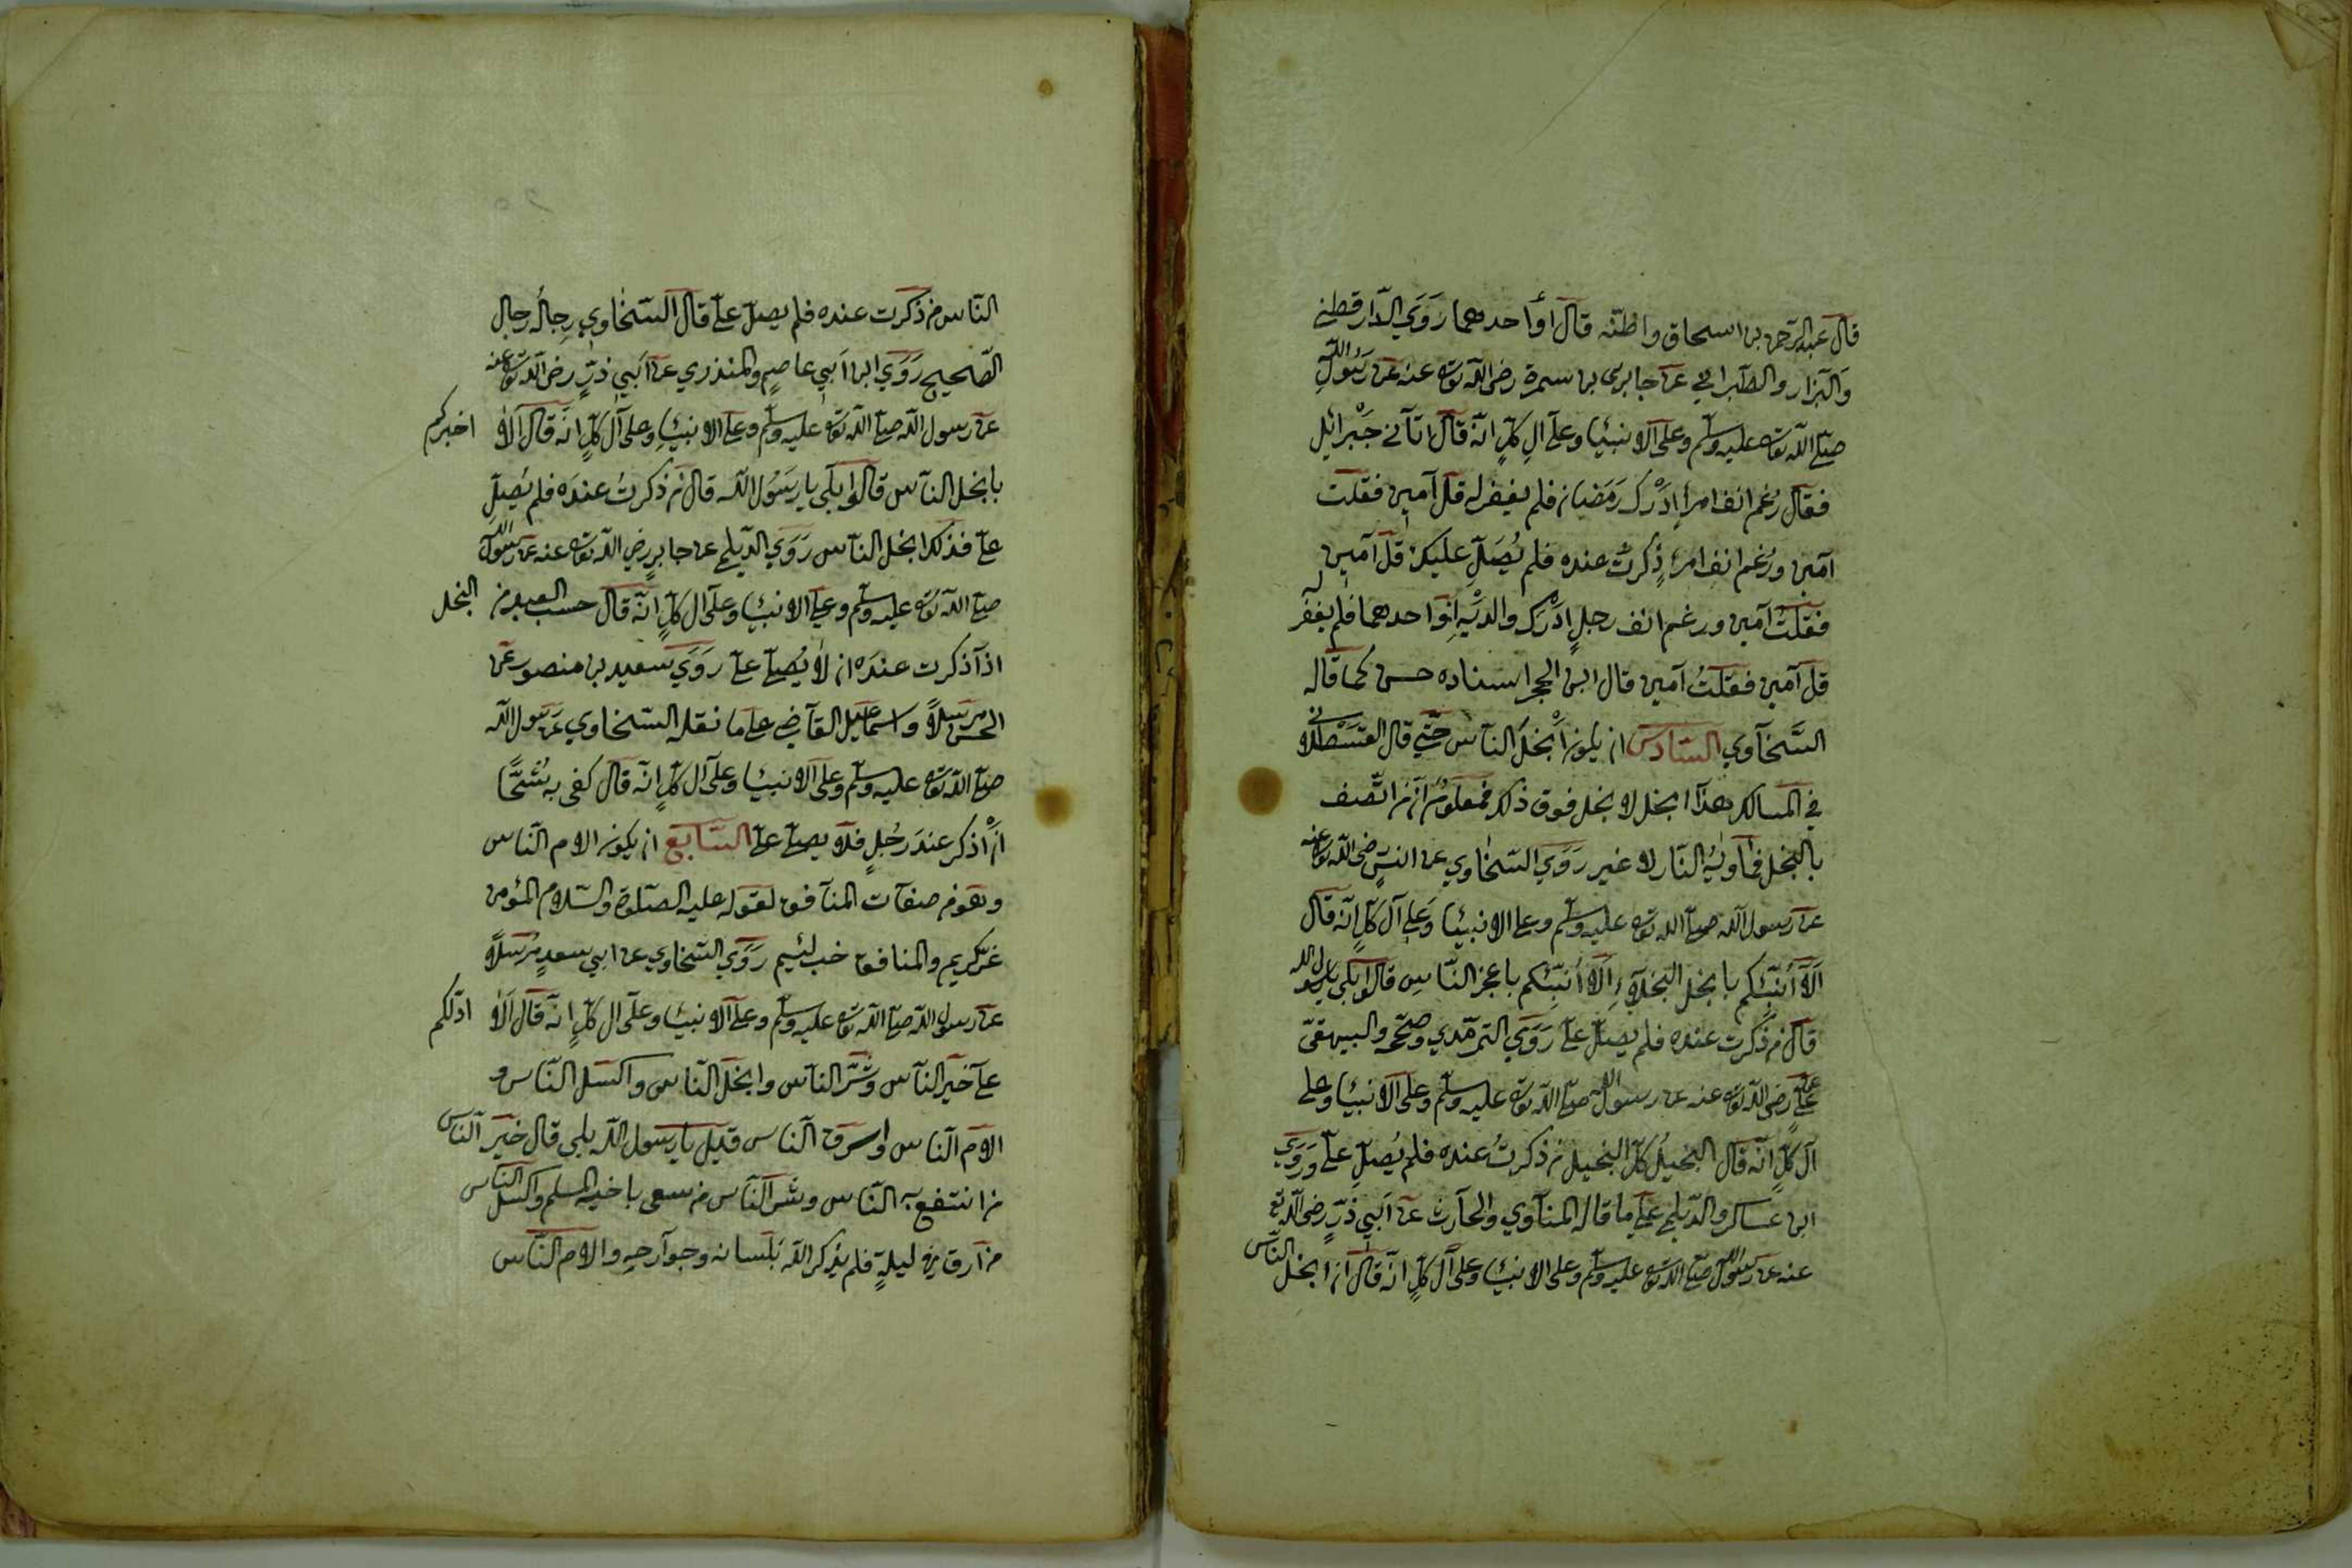 قال عبد الرحمن بن اسحاق واظنّه قال اوْ احدهما رَوَي الدّارقطني
وَالبزار والطبراني عن جابر بن سمرة رضى اللّه تعالى عنه عن رَسُولِ اللّه
صلّى اللّه تعالى عليه وسلّم وعلى الانبيا وعلى آلِ كلٍّ انّه قال اتآني جَبْرائيل
فقال رُغم انف امرأ ادْرك رَمَضان فلم يغفر له قل آمين فقلت
آمين ورُغم انف امرئ ذُكرتُ عنده فلم يُصَلِّ عليك قل آمين
فقلتُ آمين ورغم انف رجلٍ ادْرَك والديْه اَوْ احدهما فلم يغفر له
قل آمين فقلتُ آمين قال ابن الحجر اسناده حسن كما قاله
السَّخآوي السّادس ان يكون أبْخلَ النآس حتّي قال القَسْطلاني
في المسالك هذآ ابخل لا بخل فوق ذلك فمعلومٌ ان من اتّصف
بالبخل فمأويهُ النّار لا غير رَوَي السّخاوي عن انسٍ رضى اللّه تعالى عنه
عن رسول اللّه صلّى اللّه تعالى عليه وسلّم وعلى الانبيا وَعلي آل كلٍّ انّه قال
اَلآ أنَبّئكم بابخل البخلآءِ اَلآ أنبئكم باعجز النّاسِ قالوا بلى يا رسول اللّه
قال من ذُكرت عنده فلم يصلّ علىّ رَوَي الترمّذي وصحّحه والبيهقىّ
عن علىٍّ رضى اللّه تعالى عنه عن رسول اللّه صلّى اللّه تعالى عليه وسلّم وعلى الانبيا وعلى
آل كلٍّ انّه قال البخيلُ كلّ البخيل من ذُكرتُ عنده فلم يُصلِّ علىّ وَرَوَي
ابن عساكر والدّيلمي علي ما قاله المناوي والحآرث عن اَبي ذرٍّ رضى اللّه تع
عنه عن رسول اللّه صلّى اللّه تعالى عليه وسلّم وعلى الانبيا وعلى آل كلٍّ انّه قال ان ابخل النّاس
النّاس من ذُكرت عنده فلم يصلّ علىّ قال السّخاوي رِجالُه رجال
الصّحيح رَوَي ابن اَبي عاصم والمنذري عن اَبي ذرٍّ رضى اللّه تعالى عنه
عن رسول اللّه صلّى اللّه تعالى عليه وسلّم وعلى الانبيا وعلى آل كلٍّ انّه قال اَلا اخبركم
بابخل النآس قالوا بلى يا رَسُول اللّه قال من ذكرتُ عندَه فلم يُصلِّ
علىّ فذلك ابخل النآس رَوَي الدّيلمي عن جابرٍ رضى اللّه تعالى عنه عن رسول اللّه
صلّى اللّه تعالى عليه وسلّم وعلى الانبيا وعلى آل كلٍّ انّه قال حسب العبد من البخل
اذآ ذكرت عندَه ان لا يُصلّي علىّ رَوَي سعيد بن منصور عن
الحسن مرسلاً واسماعيل القآضي على ما نقله السّخاوي عن رَسول اللّه
صلّى اللّه تعالى عليه وسلّم وعلى الانبيا وعلى آل كلٍّ انّه قال كفى به شُحًّا
ان أُذكر عندَ رَجُلٍ فلا يصلّي علىّ السّابع ان يكون الأم النّاس
وهو من صفآت المنآفق لقوله عليه الصّلوة والسّلام المؤمن
غرّ كريم والمنافق خب لئيم رَوَي السّخاوي عن ابي سعدٍ مُرسَلًا
عن رسول اللّه صلّى اللّه تعالى عليه وسلّم وعلى الانبيا وعلى آل كلٍّ انّه قال اَلا ادلّكم
على خيرِ النآس وشرّ النآس وابخل النّاس واكسل النّاس و
الأم النّاس واسرق النّاس قيل يا رسول اللّه بلى قال خير النّاس
من انتفع به النّاس وشر النّاس من سعى باخيه المسلم واكسل النّاس
من ارق في ليلةٍ فلم يذكر اللّه بلسانه وجوآرحهِ والأم النّاس